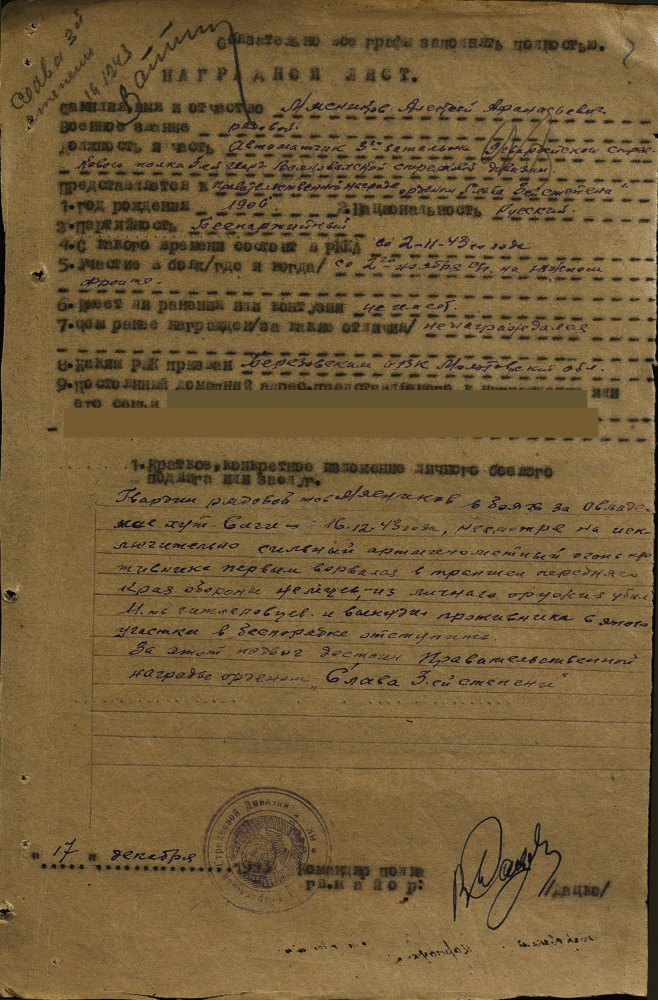 Слава 3й
степени
Обязательно все графы заполнять полностью.
НАГРАДНОЙ ЛИСТ.
Фамилия имя и отчество Мясников Алексей Афанасьевич
Военное звание рядовой.
Должность и часть Автоматчик 3го батальона Гвардейского стрел-
кового полка 3-ей гвар. Волновахской стрелковой дивизии
Представляется к правительственной награде орденом "Слава 3ей степени"
1. Год рождения 1906 2. Национальность Русский.
3. Партийность Беспартийный
4. С какого времени состоит в РККА со 2-11-43го года
5. Участие в боях/где и когда/ со 2го ноября на южном
фронте.
6. Имеет ли ранения или контузии не имеет.
7. Чем ранее награжден/за какие отличия/ не награждался
8. Каким РВК призван Березовским РВК Молотовской обл.
9. Постоянный домашний адрес представляемого к награждению или
его семьи
1. Краткое, конкретное изложение личного боевого
подвига или заслуг.
Гвардии рядовой тов Мясников в боях за овладе-
ние хут. 16.12.43 года, несмотря на иск-
лючительно сильный артминометный огонь про-
тивника первым ворвался в траншеи переднего
края обороны немцев, из личного оружия убил
гитлеровцев и вынудил противника с этого
участка в беспорядке отступить.
За этот подвиг достоин Правительственной
награды орденом „Слава 3-ей степени"
Стрелковой Дивизии
" 17 " декабря
Командир полка
гв. майор: /Дацко/